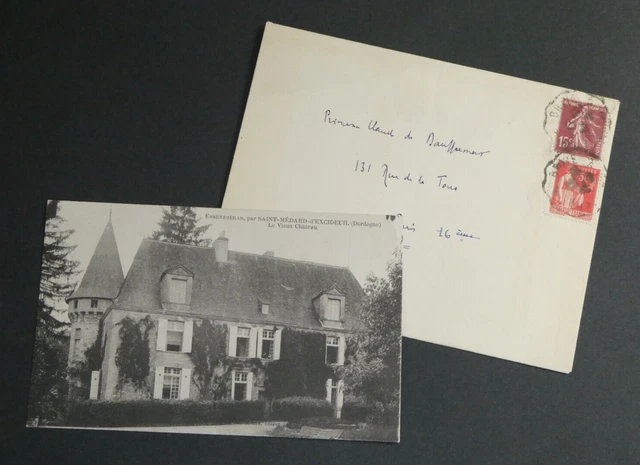 Princesse Claude de Bauffremont
131 Rue de la Tour
ris 16 ème
15c
ESSENDIÉRAS, par SAINT-MÉDARD-d'EXCIDEUIL (Dordogne)
Le Vieux Château